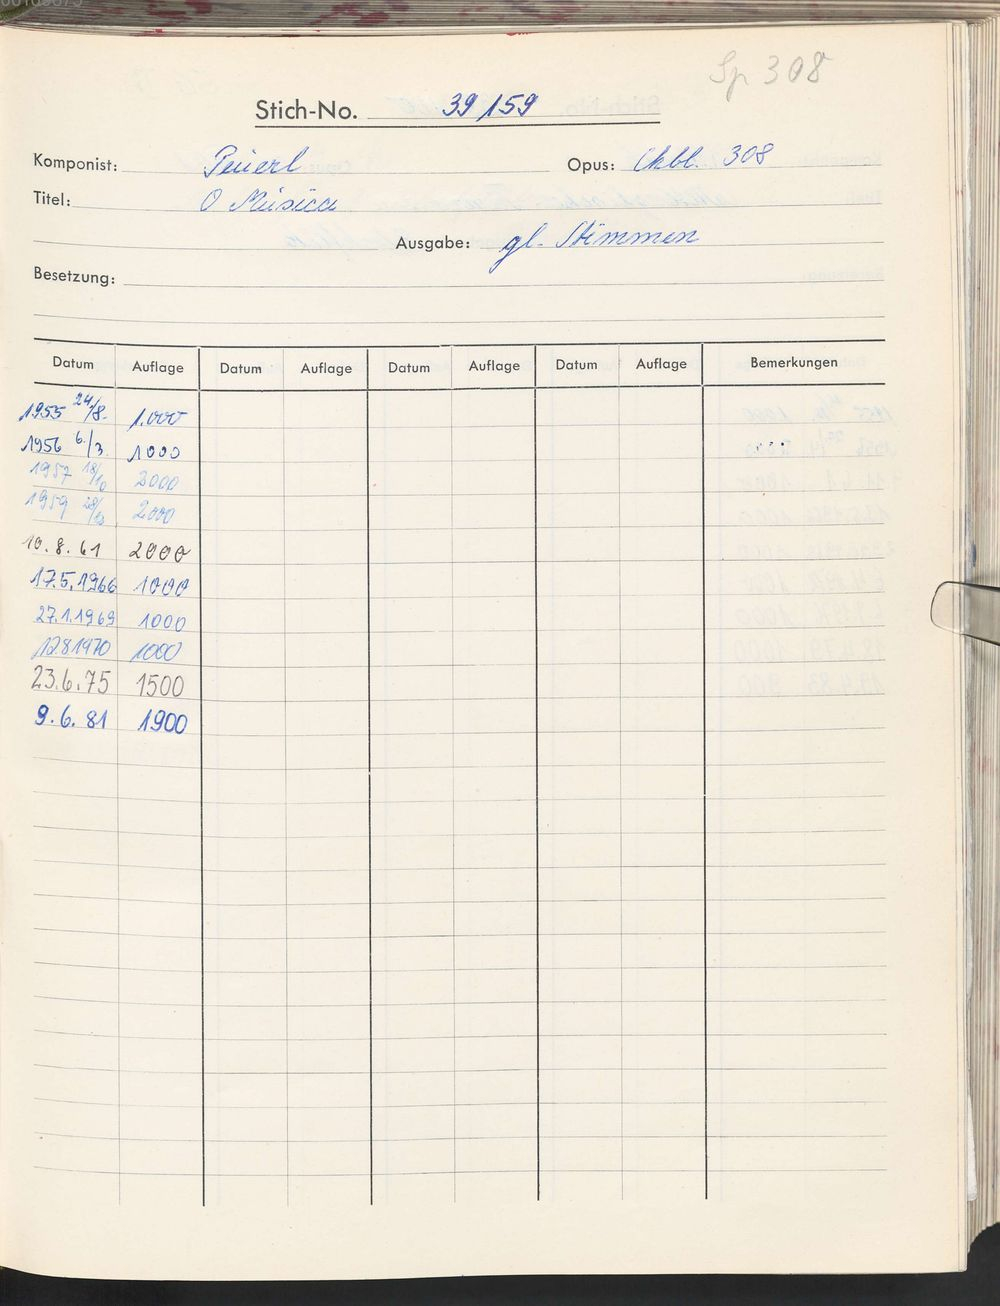 Sp 308
Stich-No. 39159
Komponist: Peuerl Opus: Chbl. 308
Titel: O Musica
Ausgabe: gl. Stimmen
Besetzung:
Datum Auflage Datum Auflage Datum Auflage Datum Auflage Bemerkungen
1955 24./8. 1.000
1956 6./3. 1000
1957 18/10 2000
1959 2000
10.8.61 2000
17.5.1966 1000
27.1.1969 1000
12.8.1970 1000
23.6.75 1500
9.6.81 1900